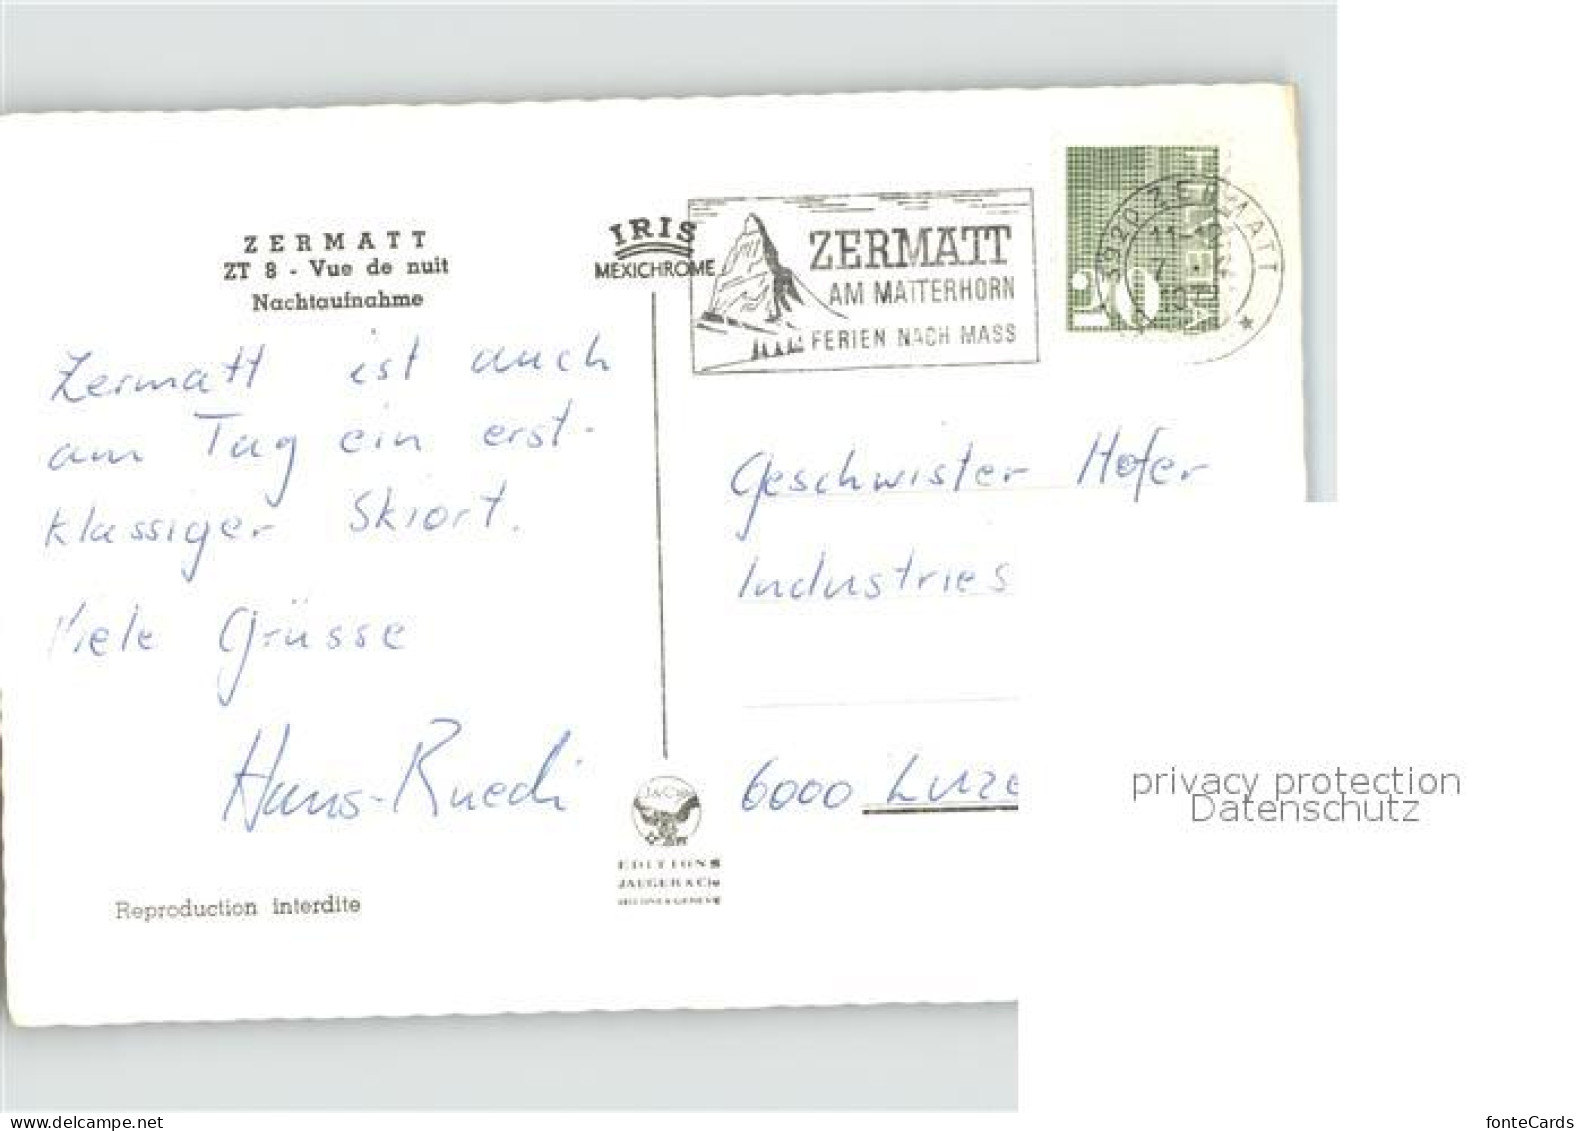 ZERMATT
ZT 8 - Vue de nuit
Nachtaufnahme
Zermatt ist auch
am Tag ein erst-
klassiger Skiort.
Viele Grüsse
Hans-Ruedi
Reproduction interdite
IRIS
MEXICHROME
J&Cie
EDITIONS
JAEGER & Cie
ZERMATT
AM MATTERHORN
FERIEN NACH MASS
HELVETIA
3920 ZERMATT
11-12
7.
Geschwister Hofer
Industries
6000 Luze
privacy protection
Datenschutz
www.delcampe.net
fonteCards